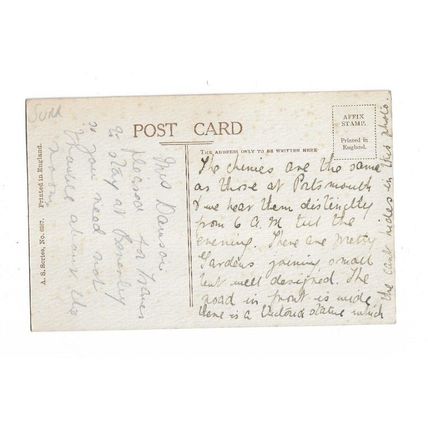 SURR
POST CARD
AFFIX
STAMP.
Printed in
England.
THE ADDRESS ONLY TO BE WRITTEN HERE
A. S. Series, No. 607. Printed in England.
The chimes are the same
as those at Portsmouth
& we hear them distinctly
from 6 A.M till the
evening. There are pretty
Gardens joining small
but well designed. The
road in front is wide
there is a Victoria Statue which
the cant hides in this photo.
Mrs Dawson
pleased for
to stay at
so you need not
about the